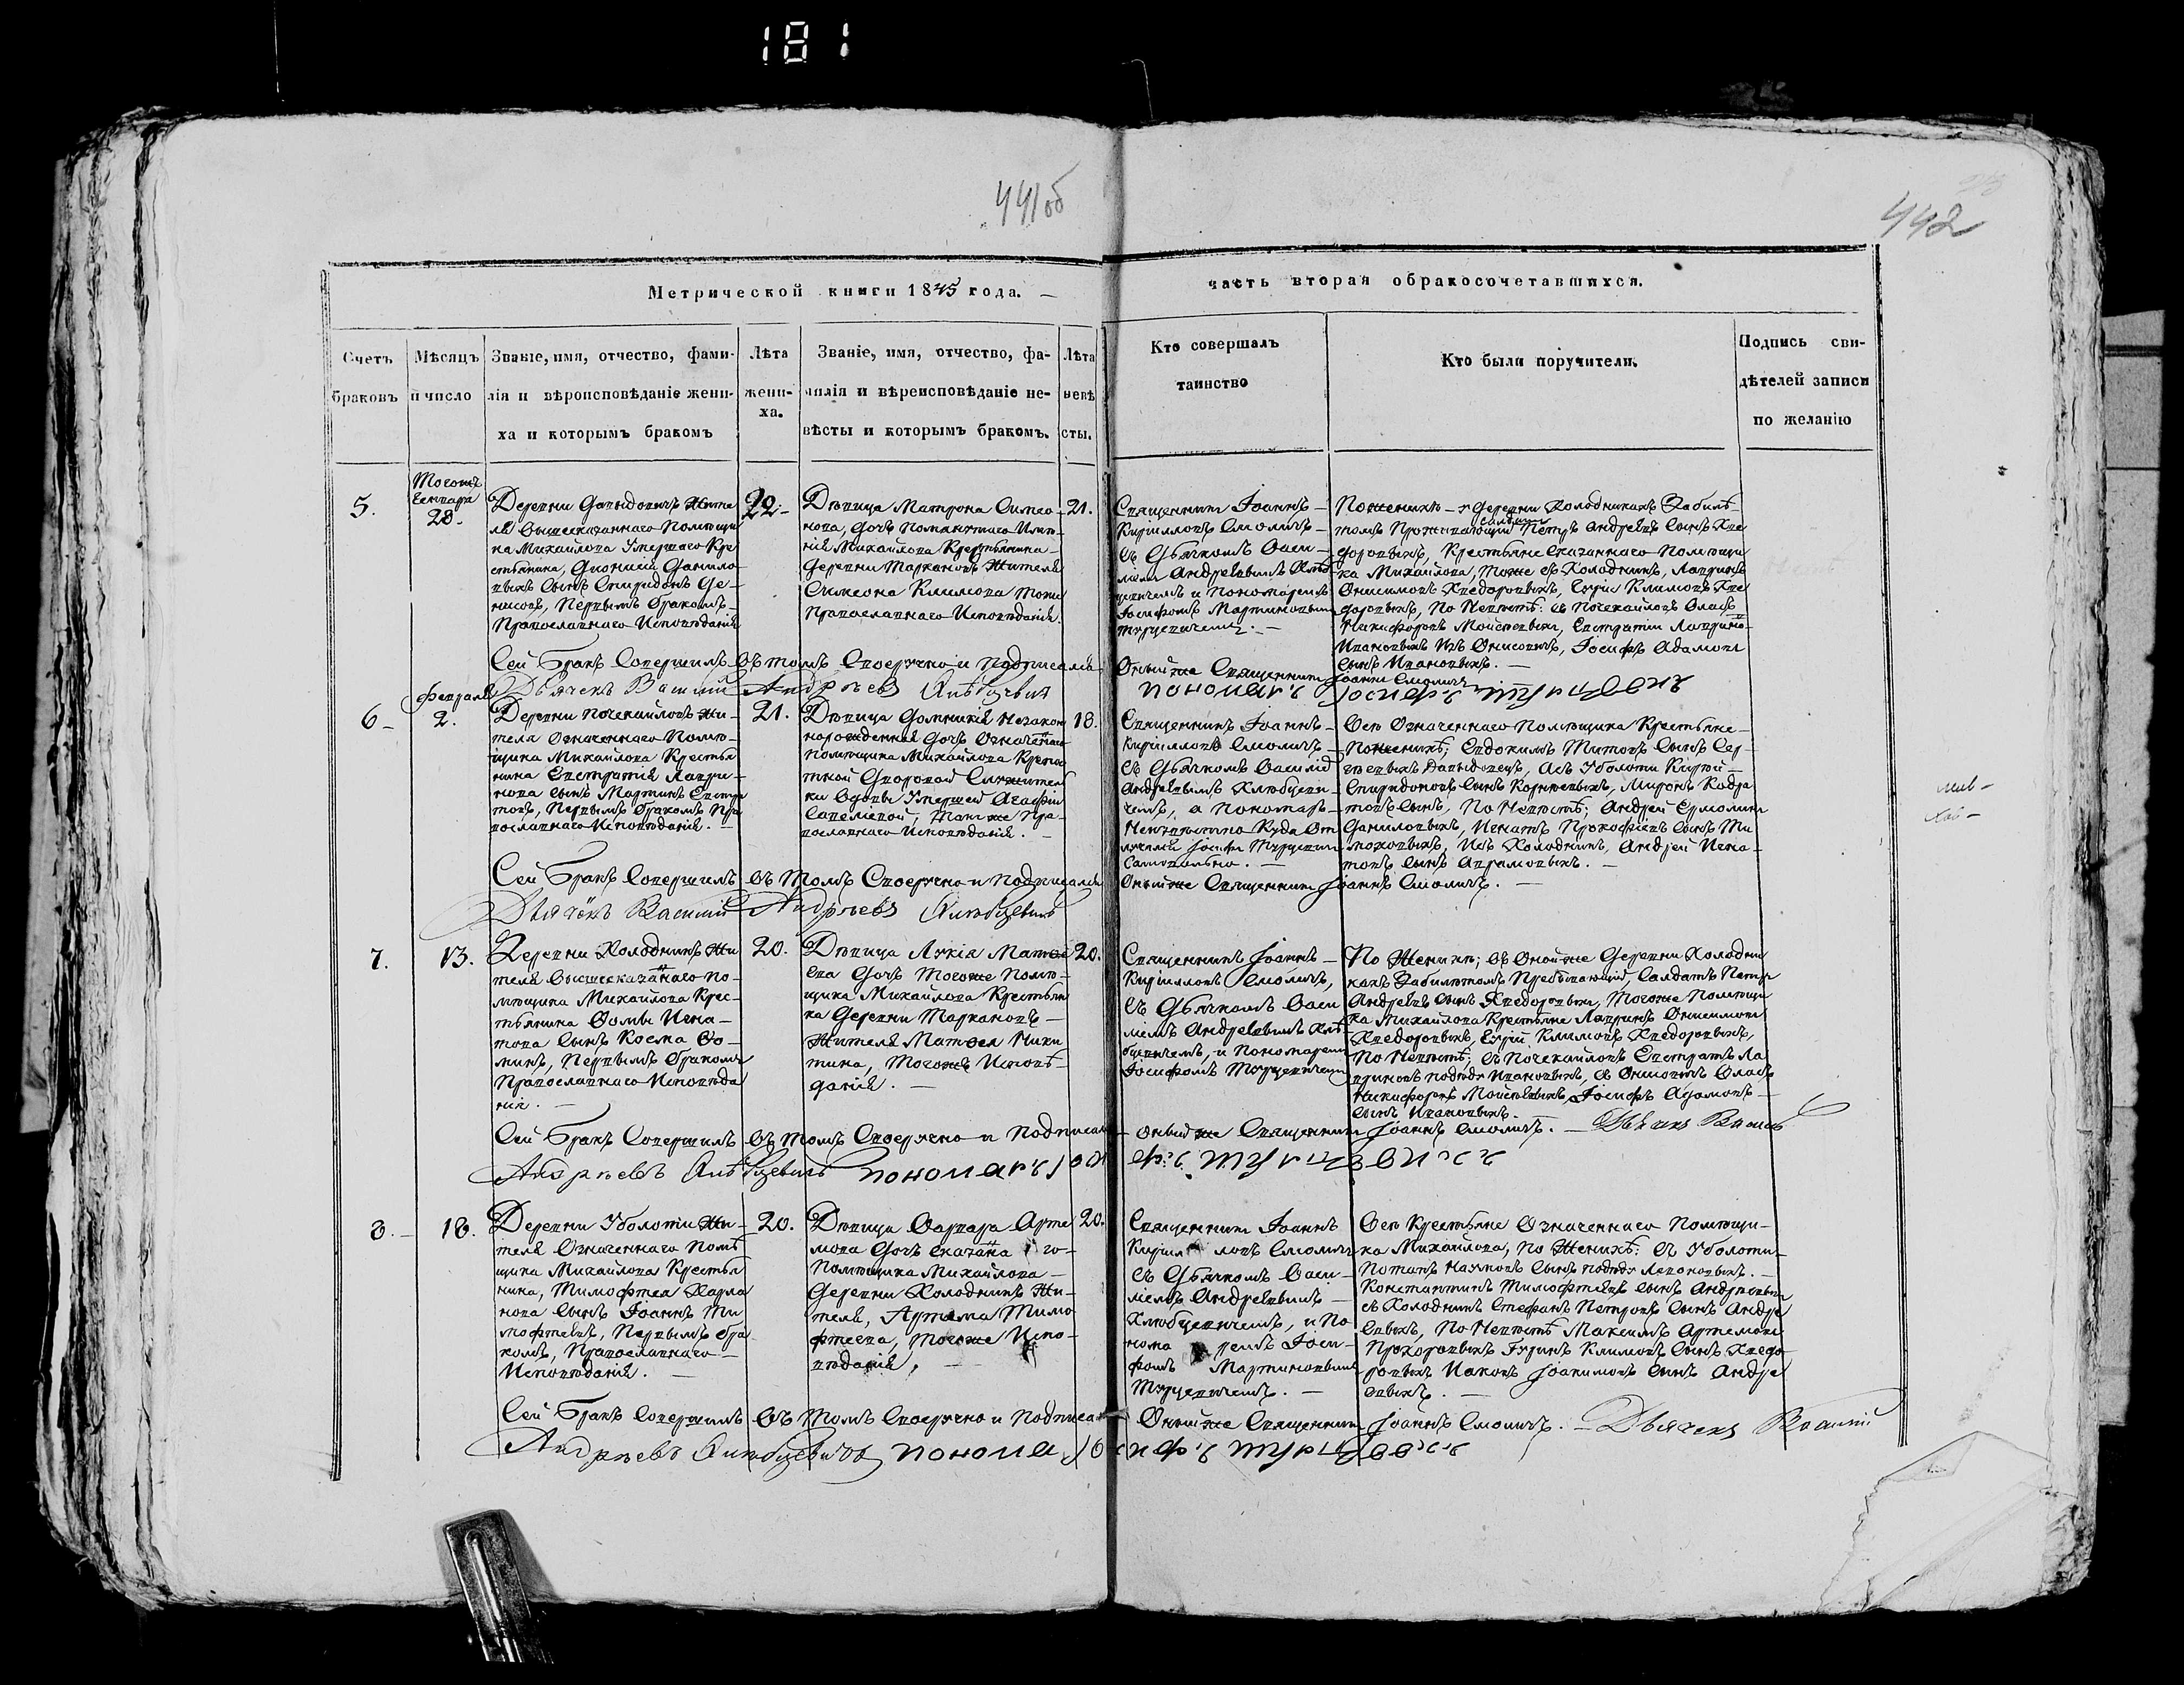 181
441об
442
Метрической книги 1845 года. —
часть вторая обракосочетавшихся.
Счетъ
браковъ
Мѣсяцъ
и число
Званіе, имя, отчество, фами-
лія и вѣроисповѣданіе жени-
ха и которымъ бракомъ
Лѣта
жени-
ха.
Званіе, имя, отчество, фа-
милія и вѣреисповѣданіе не-
вѣсты и которымъ бракомъ.
Лѣта
невѣ
сты.
Кто совершалъ
таинство
Кто были поручители.
Подпись сви-
дѣтелей записи
по желанію
5.
Тогоже
Генваря
28.
Деревни Давыдовичъ Жите
ля Вышесказаннаго Помѣщи
ка Михайлова Умершаго Кре
стьянина, Дионисія Данило
выхъ сынъ Спиридонъ Де-
нисовъ, Первымъ бракомъ
Православнаго Исповѣданія
22.
Дѣвица Матрона Симео-
нова, дочь Помянутаго Имѣ-
нія Михайлова Крестьянина
деревни Таркановъ Жителя
Симеона Климова Тоже
Православнаго Исповѣданія.
21.
Священникъ Іоаннъ
Кирилловъ Смоличъ
съ Дьячкомъ Васи-
ліемъ Андреевымъ
и Пономаремъ
Іосифомъ Мартиновымъ
Турцевичемъ. —
По Женихѣ — деревни Холодникахъ Забилѣ
томъ Проживающій солдатъ Петръ Андреевъ сынъ Хве
доровыхъ, Крестьяне сказаннаго Помѣщи
ка Михайлова, тоже съ Холодникъ, Лавринъ
Онисимовъ Хведоровыхъ, Гурій Климовъ Хве
доровыхъ, По Невѣстѣ: съ Почекайловъ Власъ
Никифоровъ Моисеевыхъ, Евстратій Лавриновъ
Ивановыхъ Изъ Онисовичъ, Іосифъ Адамовъ
сынъ Ивановыхъ. —
Сей Бракъ Совершилъ Въ томъ Своеручно и Подписался
Оный же Священникъ Іоаннъ Смоличъ
Дьячекъ Василий Андреевъ
пономаръ Іосифъ Турцевичъ
6
Февраля
2.
Деревни Почекайловъ Жи-
теля Означеннаго Помѣ-
щика Михайлова Крестья
нина Евстратія Лаври-
нова сынъ Мартинъ Евстра
товъ, Первымъ бракомъ Пра
вославнаго Исповѣданія. —
21.
Дѣвица Домникія Незакон
норожденная дочь Означеннаго
Помѣщика Михайлова Крепос
тной Дворовой Служитель
ки Вдовы Умершей Агафіи
Савеліевой, также Пра-
вославнаго Исповѣданія. —
18.
Священникъ Іоаннъ
Кирилловъ Смоличъ
съ Дьячкомъ Василій
Андреевымъ
чемъ, а Пономарь
Неизвѣстно Куда От
лучился Іосифъ Турцевичъ
Самовольно. —
Всѣ Означеннаго Помѣщика Крестьяне
По Женихѣ; Евдокимъ Титовъ сынъ Сер-
гѣевыхъ Давыдовецъ, Съ Уболоти Кирей
Спиридоновъ сынъ Корнеевыхъ, Миронъ Кодра
товъ сынъ, По Невѣстѣ; Андрей Ермолинъ
Даниловыхъ, Игнатъ Прокофіевъ сынъ Ти
моховыхъ, Изъ Холодникъ, Андрей Игна-
товъ сынъ Аврамовыхъ. —
Сей Бракъ Совершилъ Въ Томъ Своеручно и Подписался
Оный же Священникъ Іоаннъ Смоличъ. —
Дьячокъ Василий Андреевъ
7.
13.
Деревни Холодникъ Жи
теля Вышесказаннаго По-
мѣщика Михайлова Крес-
тьянина Ѳомы Игна-
това сынъ Косма Ѳо-
минъ, Первымъ бракомъ
Православнаго Исповѣда
нія. —
20.
Дѣвица Лукія Матѳе
ева дочь Тогоже Помѣ-
щика Михайлова Крестьяни
ка деревни Таркановъ
Жителя Матѳея Ники
тина, Тогоже Исповѣ-
данія. —
20.
Священникъ Іоаннъ
Кирилловъ Смоличъ,
съ Дьячкомъ Васи
ліемъ Андреевымъ
и Пономаремъ
Іосифомъ Турцевичемъ
По Женихѣ; Въ Оной же деревни Холодни
кахъ Забилѣтомъ Пребывающій, Салдатъ Петръ
Андреевъ сынъ Хведоровыхъ, Тогоже Помѣщи
ка Михайлова Крестьяне Лавринъ Онисимовъ
Хведоровыхъ, Гурій Климовъ Хведоровыхъ,
По Невѣстѣ; съ Почекайловъ Евстратъ Ла
вриновъ Ивановыхъ, съ Онисовичъ Власъ
Никифоровъ Моисѣевыхъ, Іосифъ Адамовъ
сынъ Ивановыхъ. —
Сей Бракъ Совершилъ Въ Томъ Своеручно и Подписался
оный же Священникъ Іоаннъ Смоличъ. — Дьячекъ Василий
Андреевъ пономаръ Іосифъ Турцевичъ
8.
18.
Деревни Уболоти Жи-
теля Означеннаго Помѣ
щика Михайлова Крестья
нина, Тимофтея Харла
нова сынъ Іоаннъ Ти
мофтеевъ, Первымъ бра
комъ, Православнаго
Исповѣданія. —
20.
Дѣвица Варвара Арте
мова дочь сказаннаго
Помѣщика Михайлова
деревни Холодникъ Жи-
теля, Артема Тимо
фтеева, тогоже Испо-
вѣданія, —
20.
Священникъ Іоаннъ
Кирилловъ Смоличъ
съ Дьячкомъ Васи-
ліемъ Андреевымъ
и По
номаремъ Іоси-
фомъ Мартиновымъ
Турцевичемъ. —
Всѣ Крестьяне Означеннаго Помѣщи-
ка Михайлова, По Женихѣ: Съ Уболоти
Потапъ Наумовъ сынъ —
Константинъ Тимофтеевъ сынъ Андреевыхъ
съ Холодникъ Стефанъ Петровъ сынъ Андре
евыхъ, По Невѣстѣ Максимъ Артемовъ
Прохоровыхъ Гурій Климовъ сынъ Хведо
ровыхъ Иаковъ Іоакимовъ сынъ Андре
евыхъ. —
Сей Бракъ Совершилъ Въ Томъ Своеручно и Подписался
Оный же Священникъ Іоаннъ Смоличъ. — Дьячекъ Василий
Андреевъ понома Іосифъ Турцевичъ